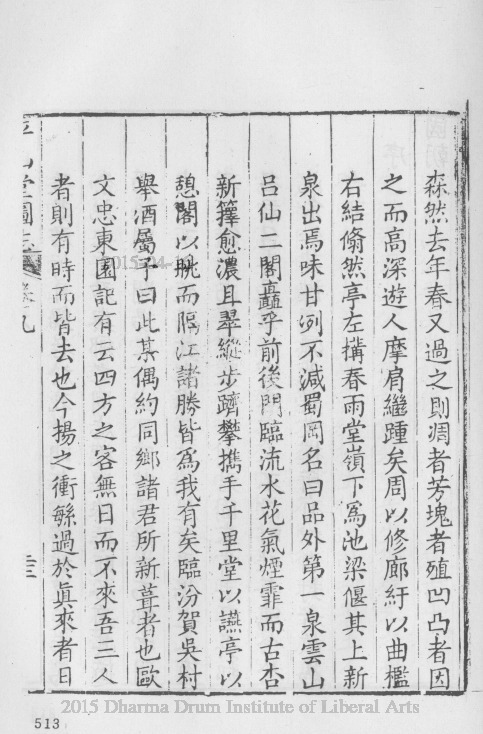 森然去年春又過之則凋者芳塊者殖凹凸者因
之而高深遊人摩肩繼踵矣周以修廊紆以曲檻
右結翛然亭左搆春雨堂嶺下爲池梁偃其上新
泉出焉味甘冽不減蜀岡名曰品外第一泉雲山
呂仙二閣矗乎前後門臨流水花氣煙霏而古杏
新篁愈濃且翠縱步躋攀攜手千里堂以讌亭以
憩閣以眺而隔江諸勝皆爲我有矣臨汾賀吳村
舉酒屬予曰此某偶約同鄉諸君所新葺者也歐
文忠東園記有云四方之客無日而不來吾三人
者則有時而皆去也今揚之衝繇過於眞來者日
平山堂圖志
卷九
513
2015 Dharma Drum Institute of Liberal Arts